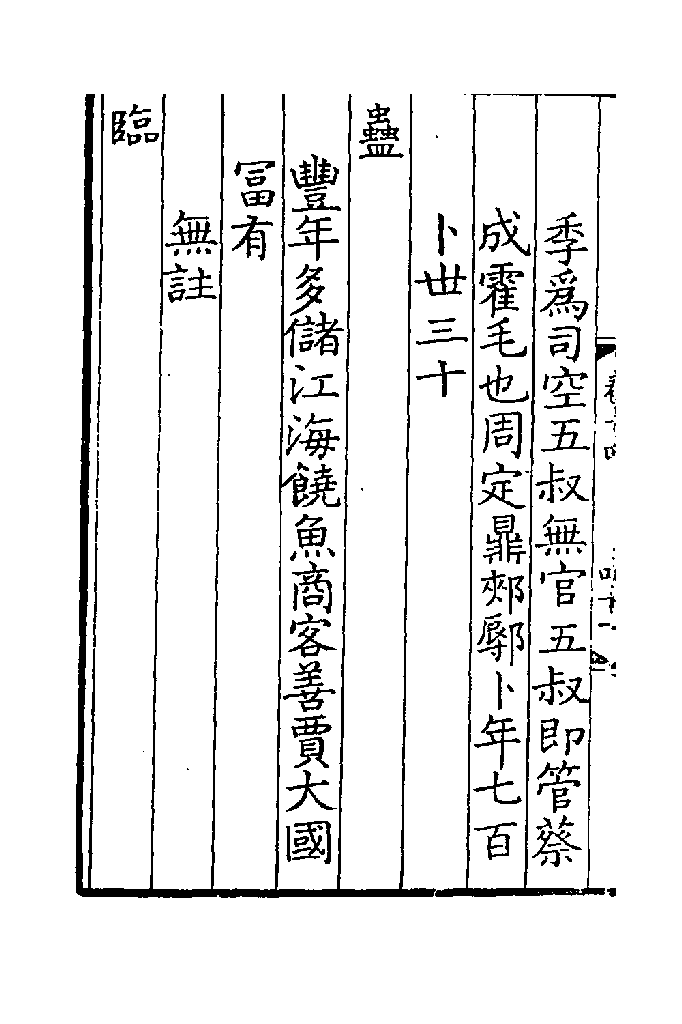 季爲司空五叔無官五叔即管蔡
成霍毛也周定鼎郟鄏卜年七百
卜世三十
蠱
豐年多儲江海饒魚商客善賈大國
冨有
無註
臨